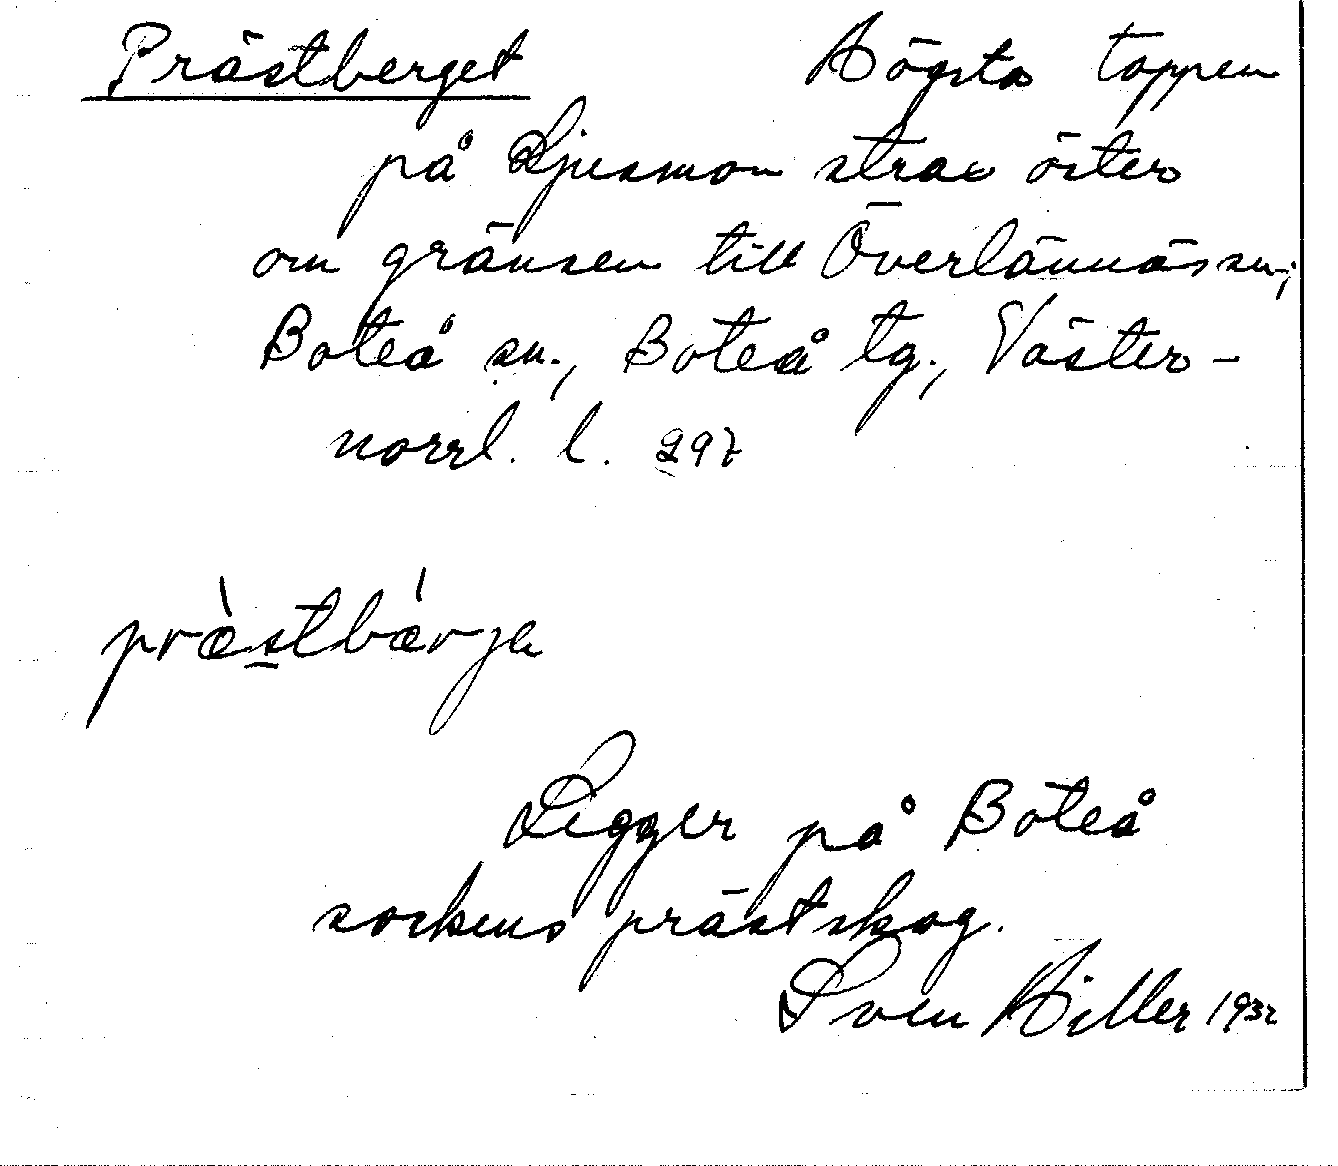 Prästberget Högsta toppen
på Ljusmon strax öster
om gränsen till Överlännäs sn;
Boteå sn., Boteå tg., Väster-
norrl. l. 297
præ̀stbǽrja
Ligger på Boteå
sockens prästskog.
Sven Hiller 1932